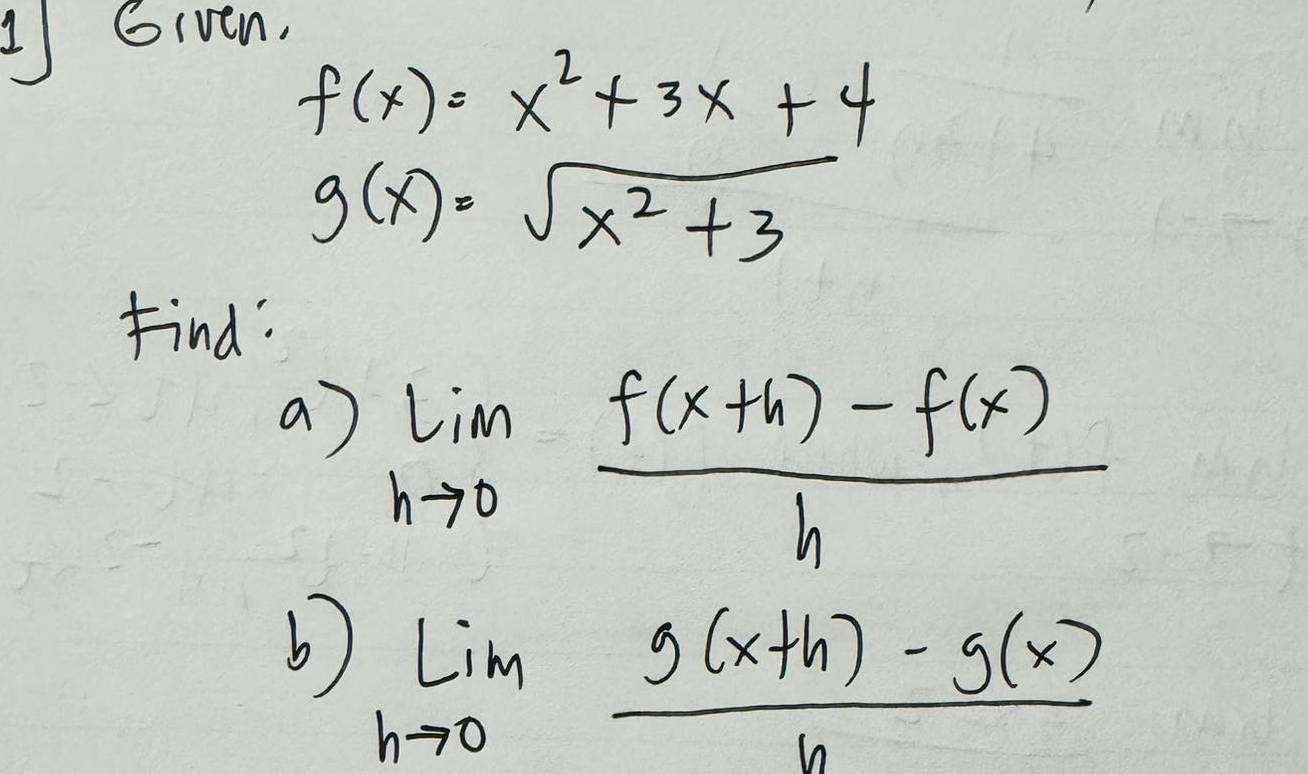 1] Given.
f(x) = x² + 3x + 4
g(x) = √(x² + 3)
Find:
a) Lim f(x+h) - f(x)
h→0 h
b) Lim g(x+h) - g(x)
h→0 h